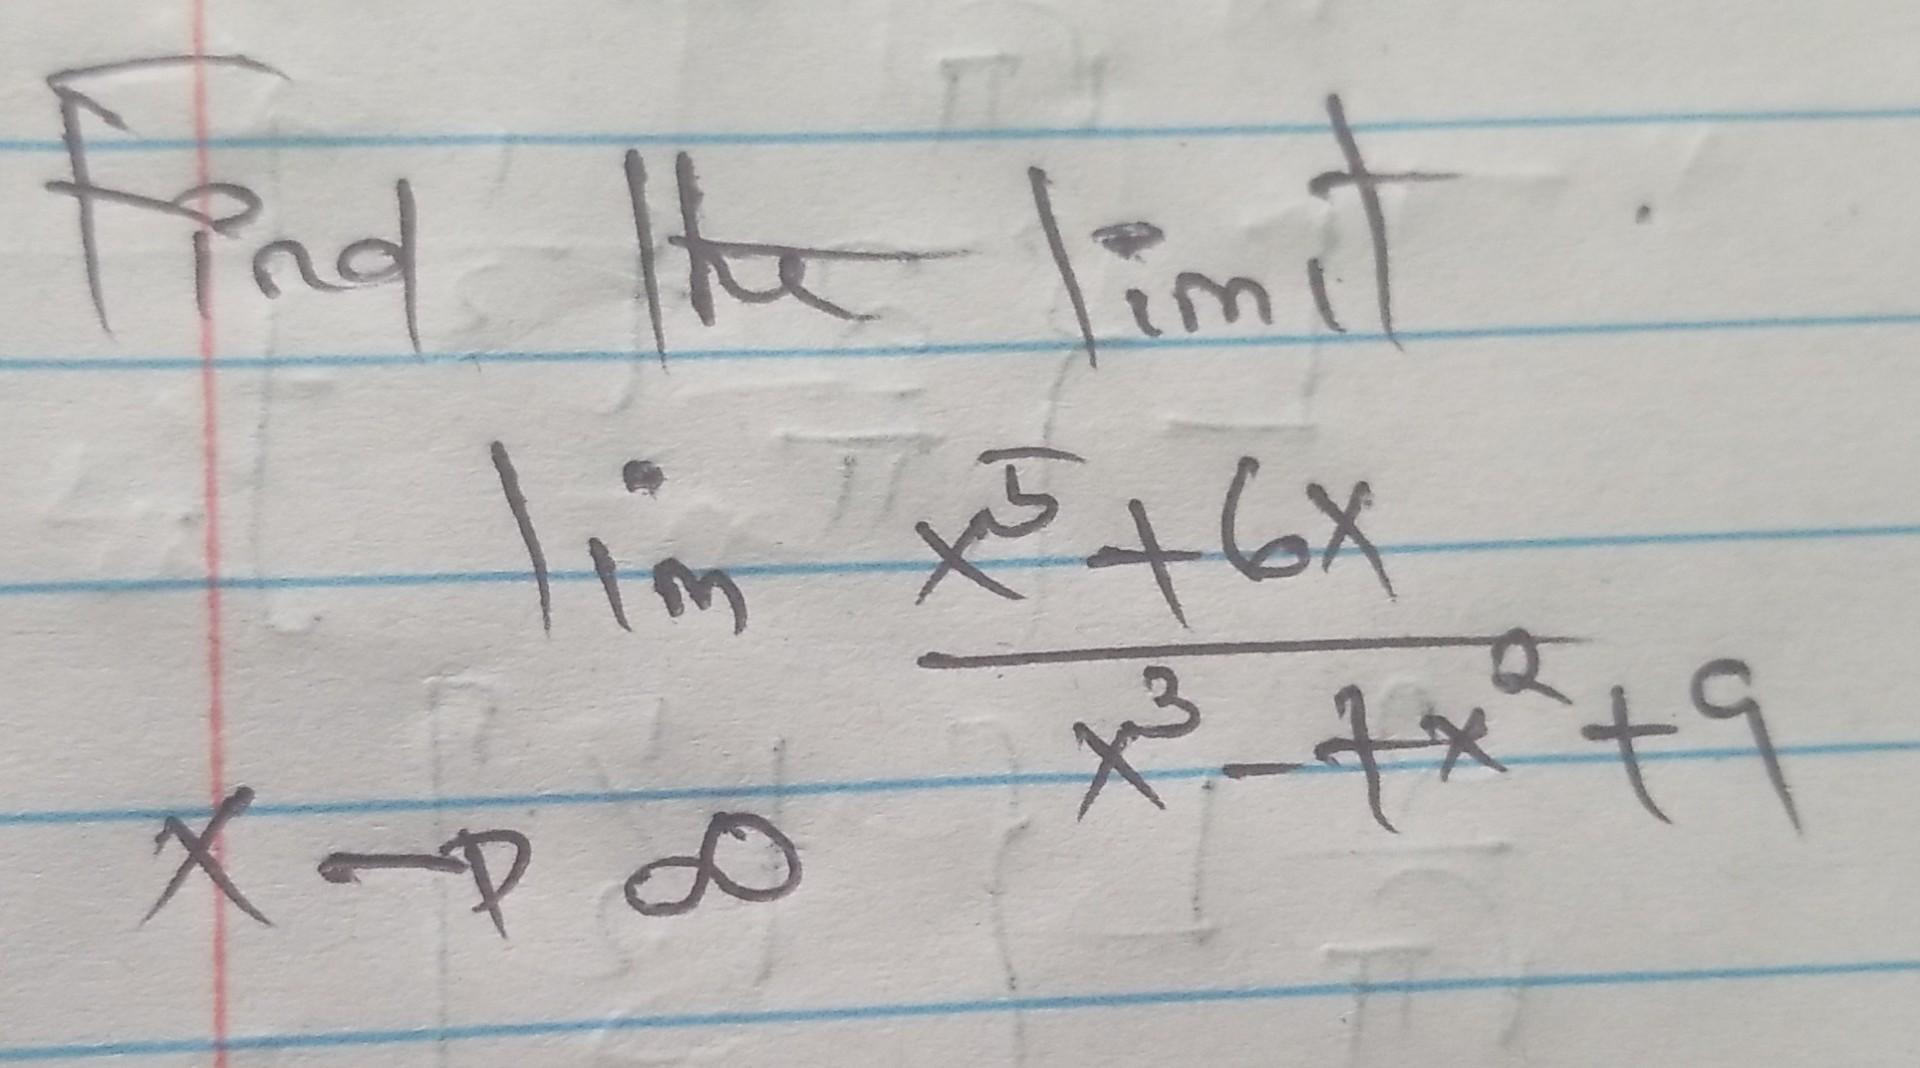 Find the limit
lim x⁵ + 6x
x³ - 7x² + 9
x → ∞